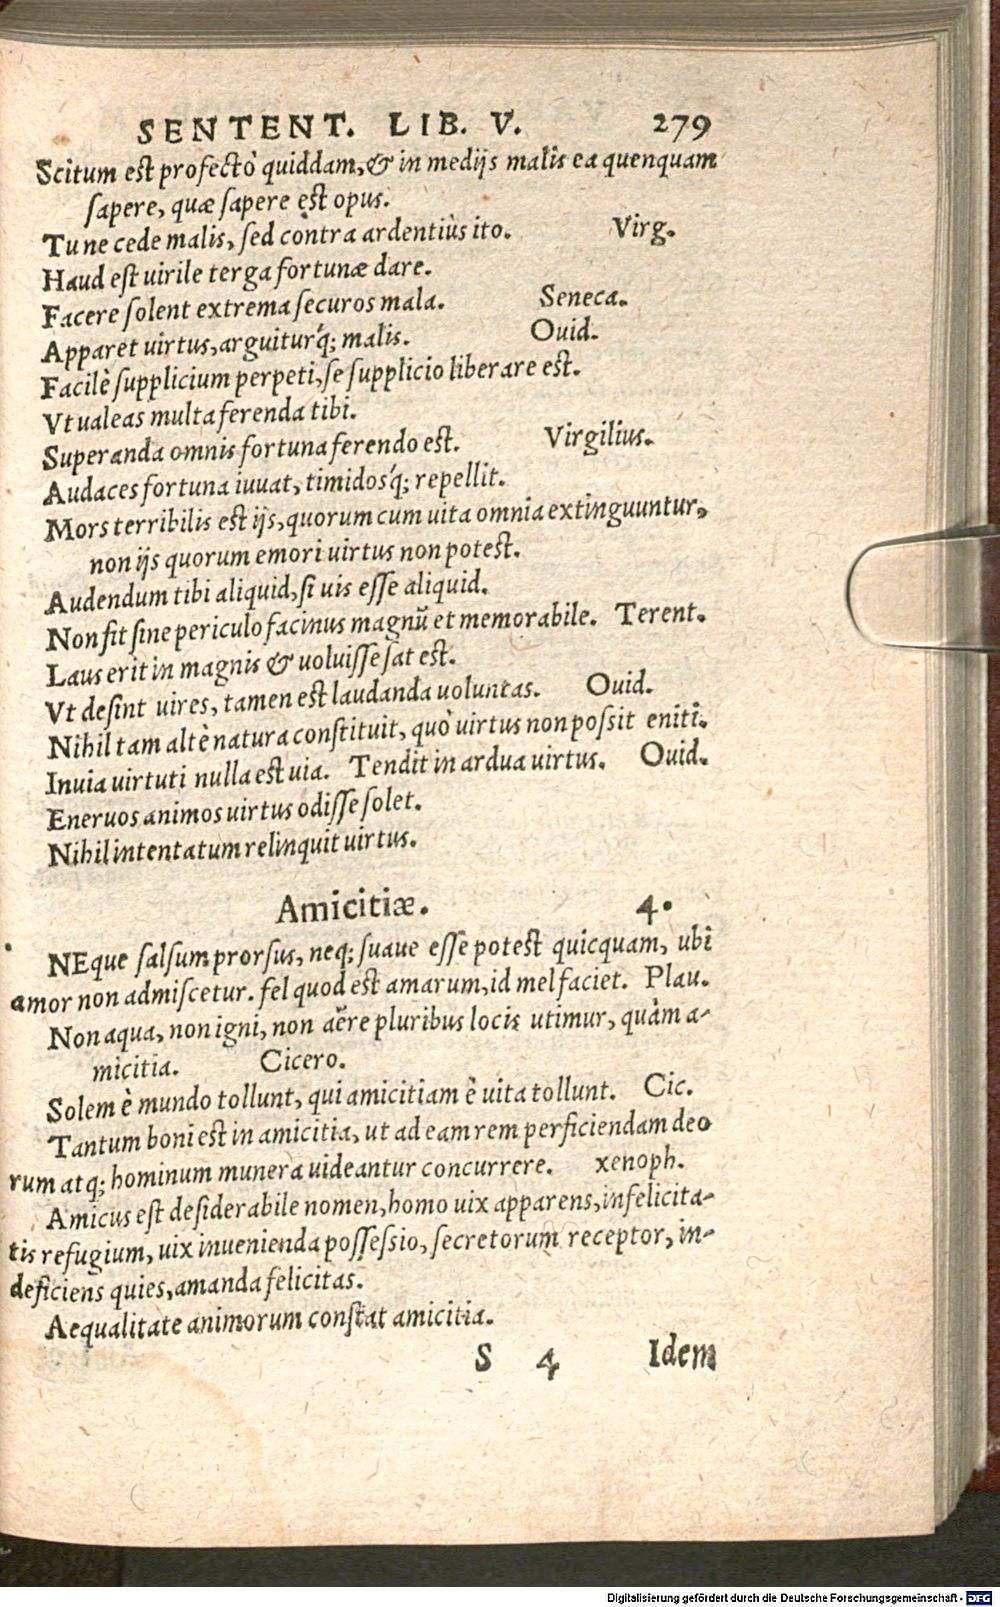 SENTENT. LIB. V. 279
Scitum est profectò quiddam, & in medijs malis ea quenquam
sapere, quæ sapere est opus.
Tu ne cede malis, sed contra ardentiùs ito. Virg.
Haud est uirile terga fortunæ dare.
Facere solent extrema securos mala. Seneca.
Apparet uirtus, arguiturq́; malis. Ouid.
Facilè supplicium perpeti, se supplicio liberare est.
Vt ualeas multa ferenda tibi.
Superanda omnis fortuna ferendo est. Virgilius.
Audaces fortuna iuuat, timidosq́; repellit.
Mors terribilis est ijs, quorum cum uita omnia extinguuntur,
non ijs quorum emori uirtus non potest.
Audendum tibi aliquid, si uis esse aliquid.
Non fit sine periculo facinus magnũ et memorabile. Terent.
Laus erit in magnis & uoluisse sat est.
Vt desint uires, tamen est laudanda uoluntas. Ouid.
Nihil tam altè natura constituit, quò uirtus non possit eniti.
Inuia uirtuti nulla est uia. Tendit in ardua uirtus. Ouid.
Eneruos animos uirtus odisse solet.
Nihil intentatum relinquit uirtus.
Amicitiæ. 4.
NEque salsum prorsus, neq; suaue esse potest quicquam, ubi
amor non admiscetur. fel quod est amarum, id mel faciet. Plau.
Non aqua, non igni, non aëre pluribus locis utimur, quàm a-
micitia. Cicero.
Solem è mundo tollunt, qui amicitiam è uita tollunt. Cic.
Tantum boni est in amicitia, ut ad eam rem perficiendam deo
rum atq; hominum munera uideantur concurrere. xenoph.
Amicus est desiderabile nomen, homo uix apparens, infelicita-
tis refugium, uix inuenienda possessio, secretorum receptor, in-
deficiens quies, amanda felicitas.
Aequalitate animorum constat amicitia.
S 4 Idem
Digitalisierung gefördert durch die Deutsche Forschungsgemeinschaft - DFG